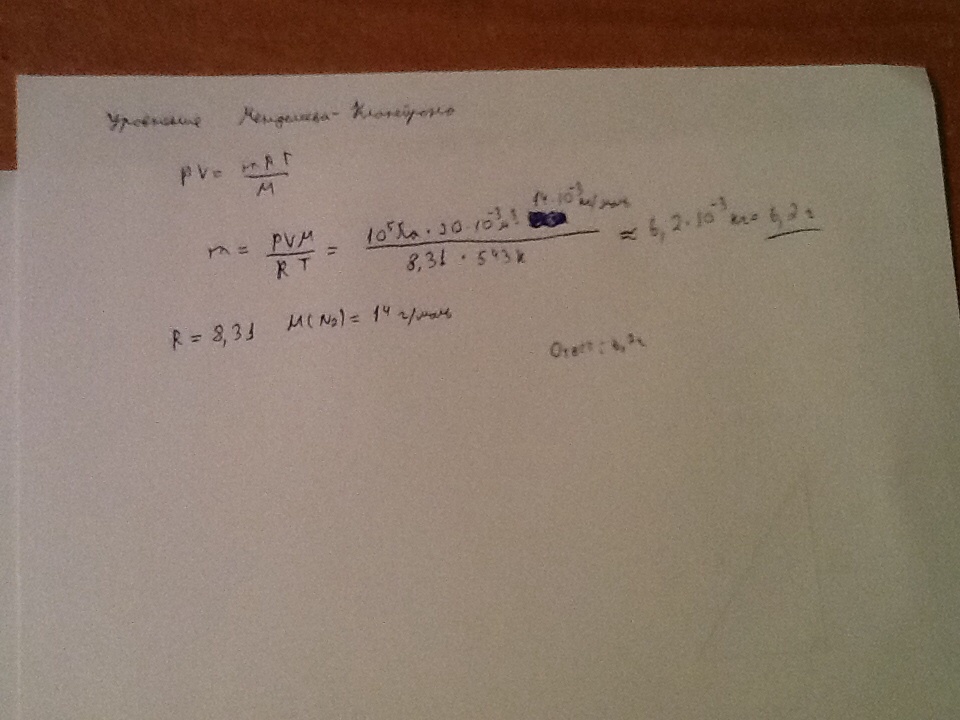 Уравнение Менделеева-Клапейрона
pV = mRT/M
m = pVM/RT = 10⁵Па · 20 · 10⁻³м³ 14·10⁻³кг/моль / 8,31 · 543К ≈ 6,2·10⁻³ кг = 6,2 г
R = 8,31 M(N₂) = 14 г/моль
Ответ: 6,2г